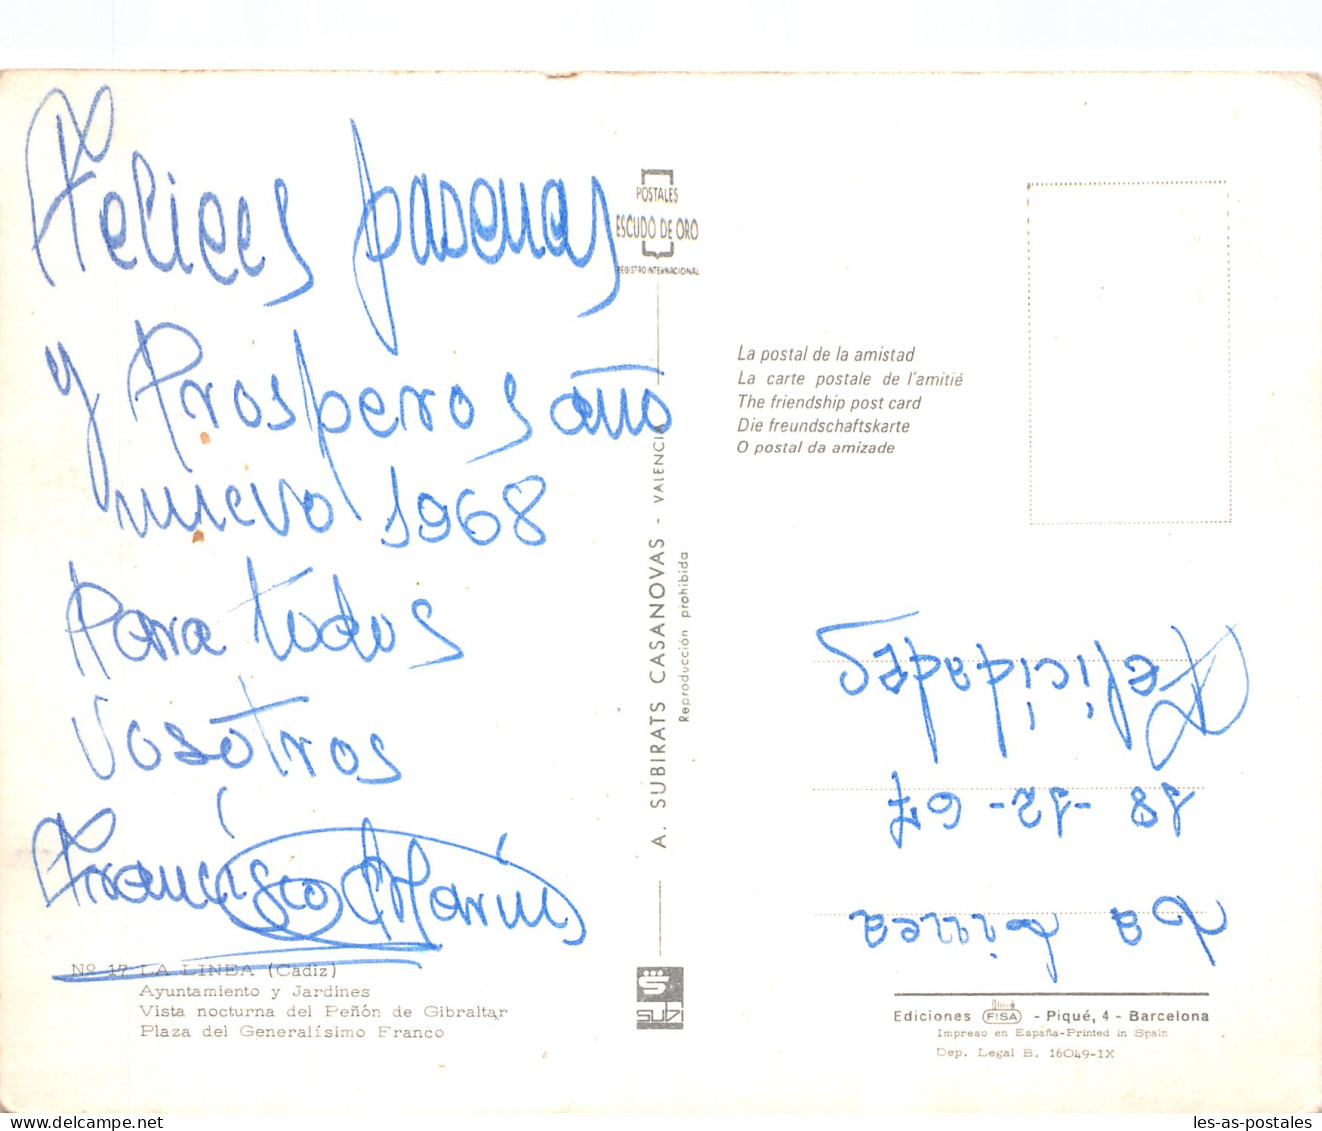 Felices pascuas
y Prosperos año
nuevo 1968
Para todos
vosotros
Francisco Marin
Nº 17 LA LINEA (Cádiz)
Ayuntamiento y Jardines
Vista nocturna del Peñón de Gibraltar
Plaza del Generalísimo Franco
POSTALES
ESCUDO DE ORO
REGISTRO INTERNACIONAL
A. SUBIRATS CASANOVAS - VALENCIA
Reproducción prohibida
subi
La postal de la amistad
La carte postale de l'amitié
The friendship post card
Die freundschaftskarte
O postal da amizade
La Linea
18-12-67
Felicidades
Ediciones FISA - Piqué, 4 - Barcelona
Impreso en España-Printed in Spain
Dep. Legal B. 16049-IX
les-as-postales